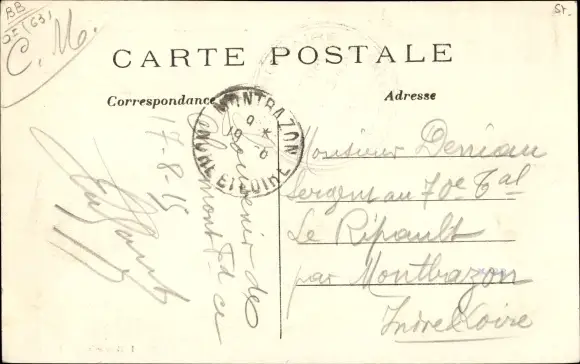 BB
(63)
St.
C. M.
CARTE POSTALE
Correspondance
Adresse
MONTBAZON
9 *
19 - 8
INDRE ET LOIRE
17-8-15
Souvenir de
Clermont-Fd ce
Monsieur Deniau
Sergent au 70e Tal
Le Ripault
par Montbazon
Indre & Loire